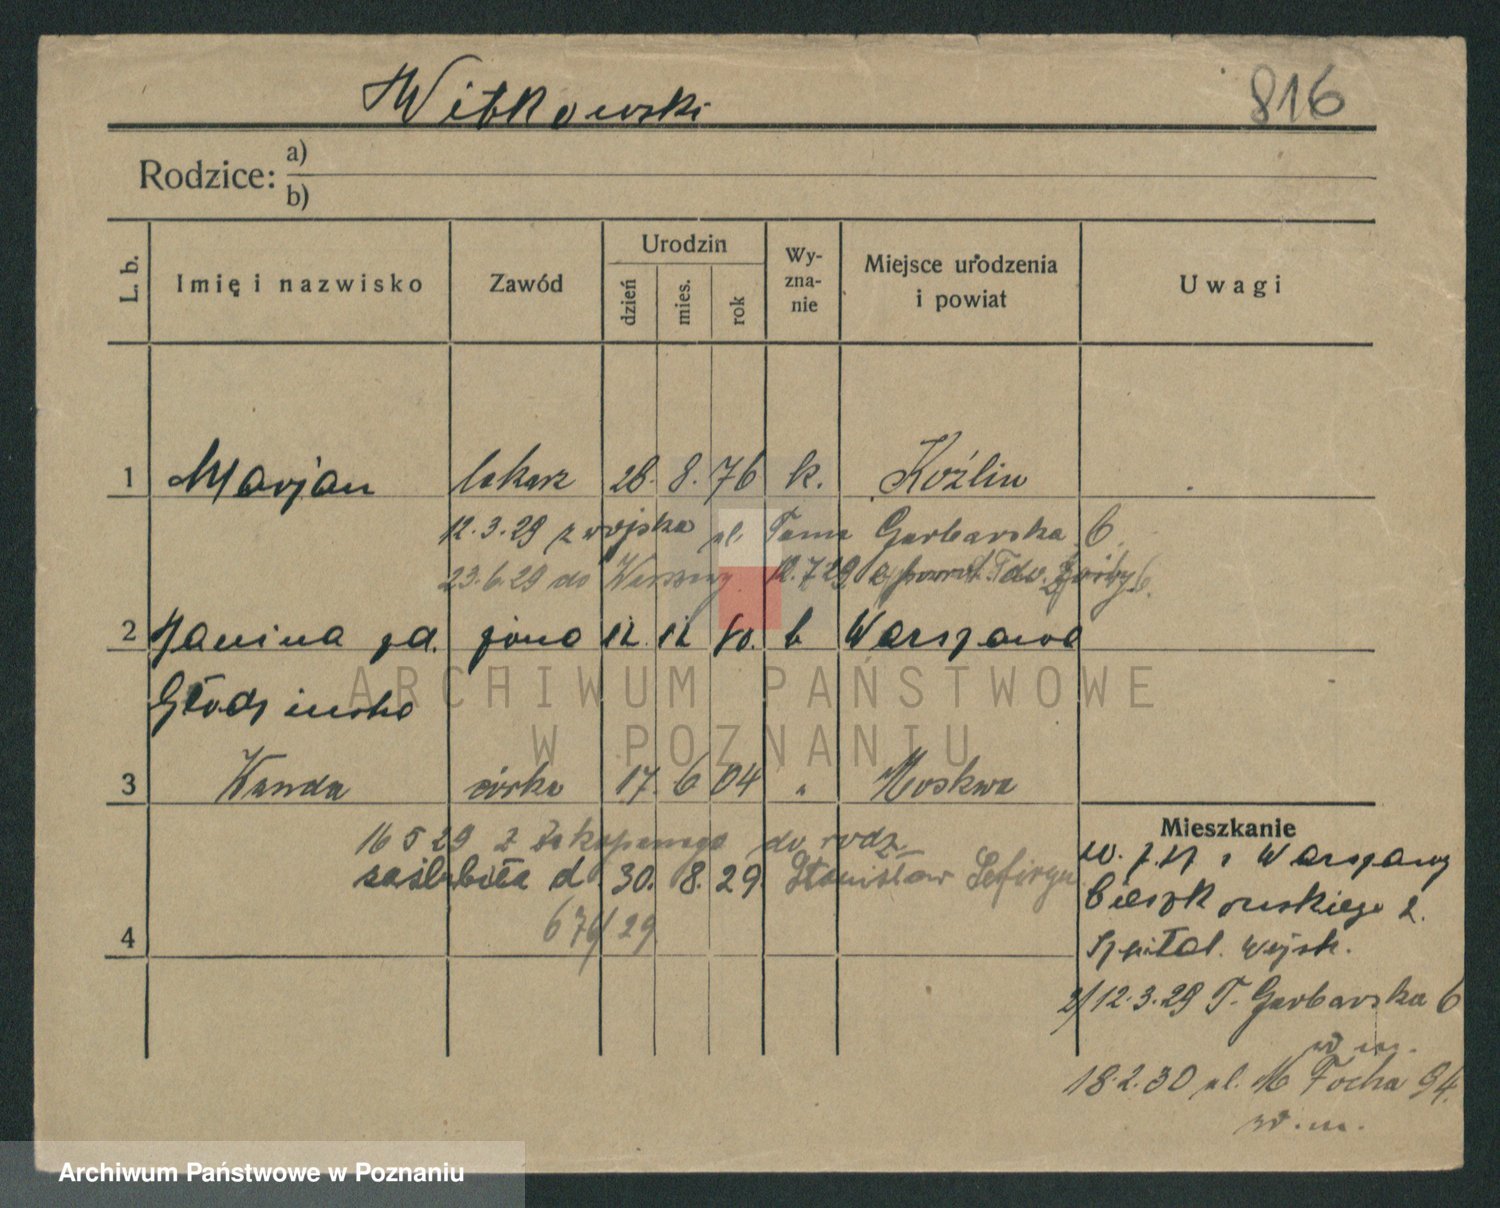 Witkowski
816
Rodzice: a)
b)
L. b.
Imię i nazwisko
Zawód
Urodzin
dzień
mies.
rok
Wy-
zna-
nie
Miejsce urodzenia
i powiat
Uwagi
1 Marjan lekarz 28. 8. 76 k. Koźlin
12.3.29 z wojska ul. Tama Garbarska 6
23.6.29 do Warszawy 12.7.29 z powrot. T
2 Janina zd. żona 12. 12. 80. k Warszawa
Głodzinska
3 Wanda córka 17. 6 04 " Moskwa
16 5 29 z Zakopanego do rodz.
zaślubiła d. 30. 8. 29 Stanisław
4 29
Mieszkanie
z Warszawy
2.
Szpital. wojsk.
2/ 12.3.29 T. Garbarska 6
w m.
18.2.30 ul. M Focha 94.
w. m.
ARCHIWUM PAŃSTWOWE
W POZNANIU
Archiwum Państwowe w Poznaniu